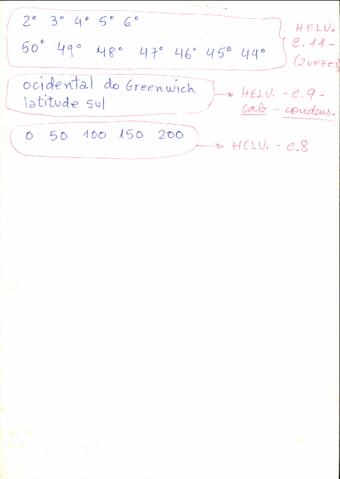 2° 3° 4° 5° 6°
50° 49° 48° 47° 46° 45° 44°
HELV.
C. 11 -
ocidental do Greenwich
latitude sul
HELV. - c. 9 -
cab - condens.
0 50 100 150 200
HELV. - c. 8